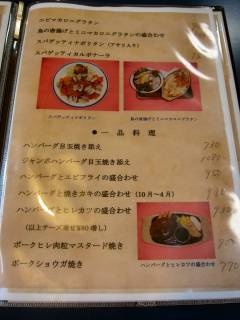 エビマカロニグラタン
鳥の唐揚げとミニマカロニグラタンの盛合わせ
スパゲッティナポリタン（アサリ入り）
スパゲッティカルボナーラ
スパゲッティナポリタン
鳥の唐揚げとミニマカロニグラタン
●一品料理
ハンバーグ目玉焼き添え
ジャンボハンバーグ目玉焼き添え
ハンバーグとエビフライの盛合わせ
ハンバーグと焼きカキの盛合わせ（10月〜4月）
ハンバーグとヒレカツの盛合わせ
（以上チーズ乗せ¥80増し）
ポークヒレ肉粒マスタード焼き
ポークショウガ焼き
ハンバーグとヒレカツの盛合わせ